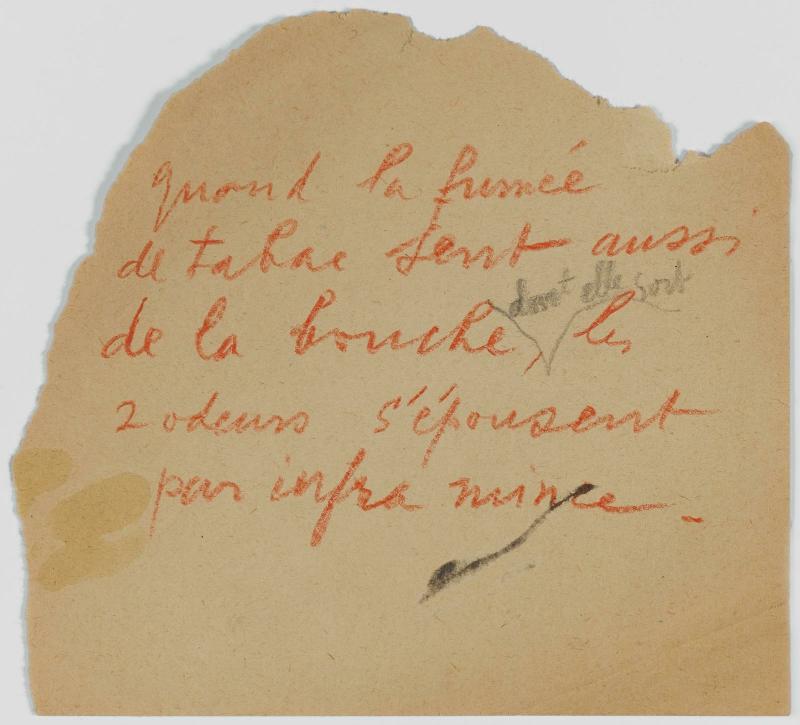 quand la fumée
de tabac sent aussi
dont elle sort
de la bouche, les
2 odeurs s'épousent
par infra mince_.